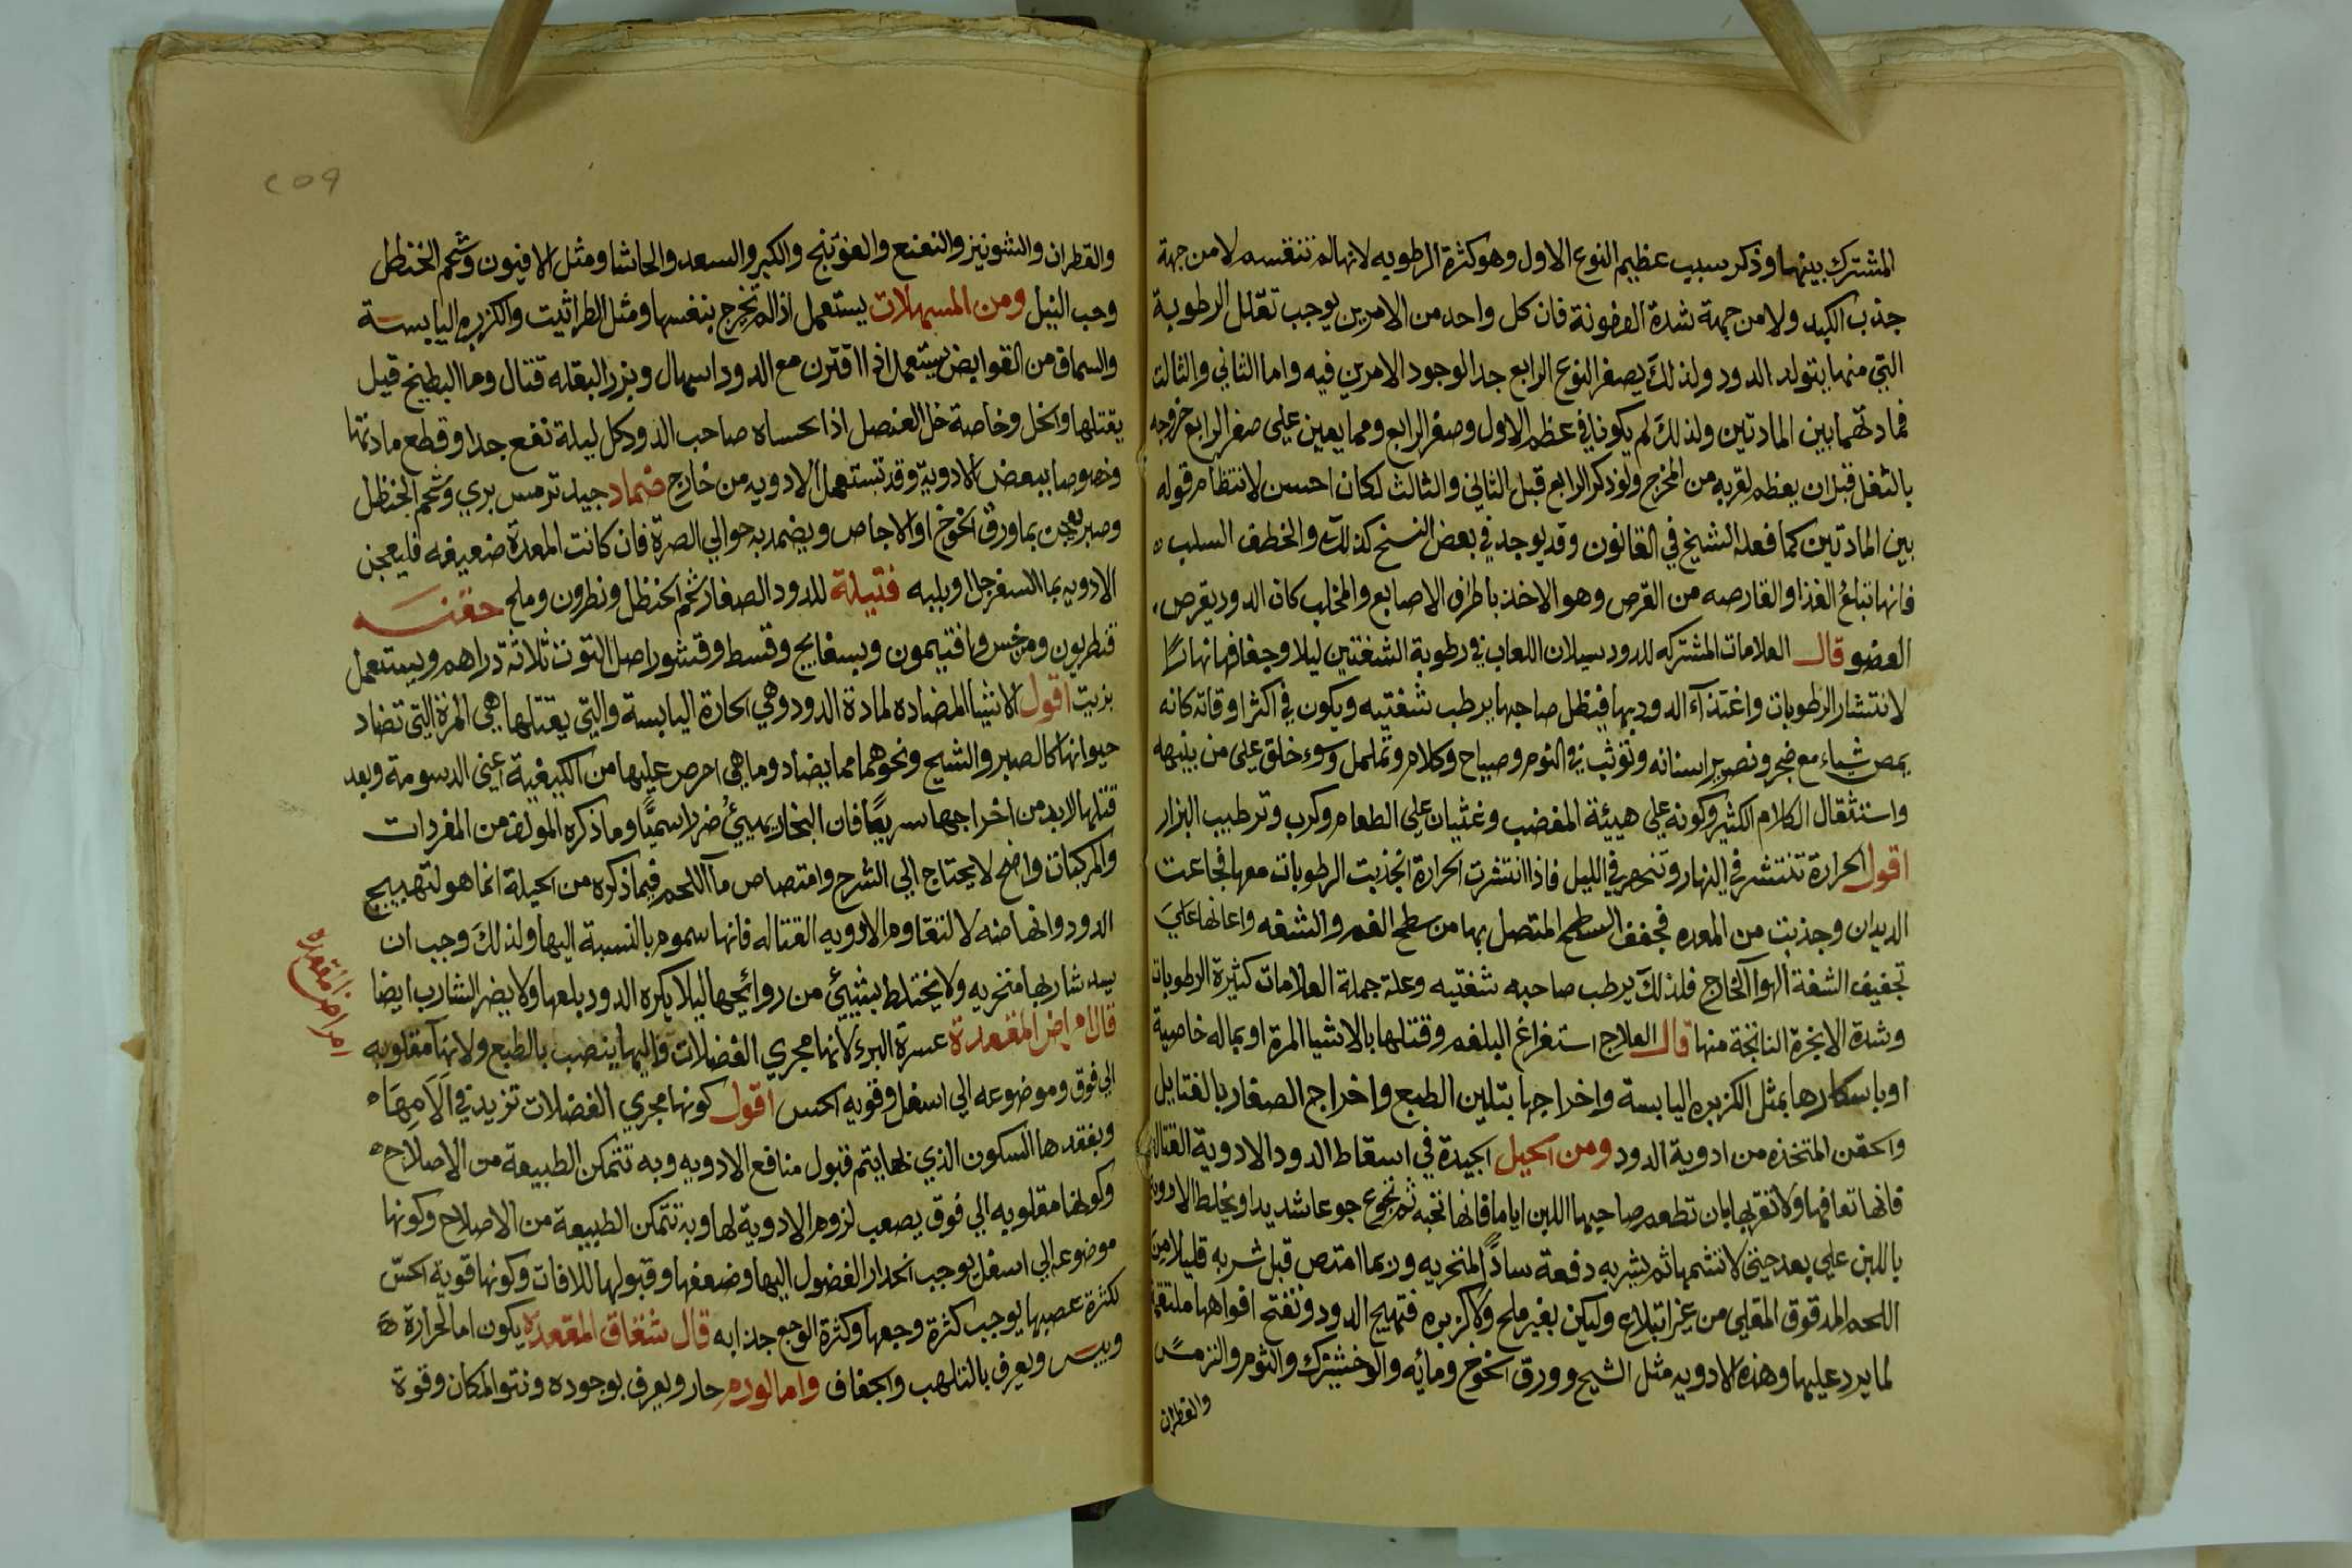 المشترك بينهما وذكر سبب عظيم النوع الاول وهو كثرة الرطوبه لانها لم تنقسه لا من جهة
جذب الكبد ولا من جهة شدة العفونة فان كل واحد من الامرين يوجب تقلل الرطوبة
التي منها يتولد الدود ولذلك يصغر النوع الرابع جدا لوجود الامرين فيه واما الثاني والثالث
فمادتهما بين المادتين ولذلك لم يكونا في عظم الاول وصغر الرابع ومما يعين على صغر الرابع خروجه
بالثفل قبل ان يعظم لقربه من المخرج ولو ذكر الرابع قبل الثاني والثالث لكان احسن لانتظام قوله
بين المادتين كما فعله الشيخ في القانون وقد يوجد في بعض النسخ كذلك والخطف السلب
فانها تبلغ الغذا والقارصه من القرص وهو الاخذ باطراف الاصابع والمخلب كان الدود يقرص
العضو قال العلامات المشتركه للدود سيلان اللعاب في رطوبة الشفتين ليلا وجفافها نهارًا
لانتشار الرطوبات واغتذآء الدود بها فيظل صاحبها يرطب شفتيه ويكون في اكثر اوقاته كانه
يمص شياء مع ضجر وتصرير اسنانه وتوثب في النوم وصياح وكلام وتململ وسوء خلق على من ينبهه
واستثقال الكلام الكثير وكونه علي هيئة المغضب وغثيان علي الطعام وكرب وترطيب البزار
اقول الحرارة تنتشر في النهار وتنحصر في الليل فاذا انتشرت الحرارة انجذبت الرطوبات معها فجاعت
الديدان وجذبت من المعده فجفف السطح المتصل بها من سطح الفم والشفه واعانها علي
تجفيف الشفة الهوآ الخارج فلذلك يرطب صاحبه شفتيه وعلة جملة العلامات كثيرة الرطوبات
وشدة الابخرة الناتجة منها قال العلاج استفراغ البلغم وقتلها بالاشيا المرة او بماله خاصية
او باسكارها بمثل الكزبره اليابسة واخراجها بتلين الطبع واخراج الصغار بالفتايل
والحقن المتخذه من ادوية الدود ومن الحيل الجيدة في اسقاط الدود الادوية القتالة
فانها تعافها ولا تقربها بان تطعم صاحبها اللبن اياما فانها تحبه ثم تجوع جوعا شديدا ويخلط الادوية
باللبن علي بعد حتى لا تشمها ثم يشربه دفعة سادًا لمنخريه وربما امتص قبل شربه قليلا من
اللحم المدقوق المقلي من غير ابتلاع وليكن بغير ملح ولا كزبره فتهيج الدود وتفتح افواهها ملتقمة
لما يرد عليها وهذه الادويه مثل الشيح وورق الخوخ ومائه والوخشيزك والثوم والترمس
والقطران
والقطران والشونيز والنعنع والفوتنج والكبر والسعد والحاشا ومثل الافيون وشحم الحنظل
وحب النيل ومن المسهلات يستعمل اذا لم تخرج بنفسها ومثل الطراثيت والكزبره اليابسة
والسماق من القوابض يستعمل اذا اقترن مع الدود اسهال وبزر البقله قتال وما البطيخ قيل
يقتلها والخل وخاصة خل العنصل اذا تحساه صاحب الدود كل ليلة نفع جدا وقطع مادتها
وخصوصا ببعض الادوية وقد تستعمل الادويه من خارج ضماد جيد ترمس بري وشحم الحنظل
وصبر يعجن بما ورق الخوخ او الاجاص ويضمد به حوالي الصرة فان كانت المعدة ضعيفه فليعجن
الادويه بما السفرجل او بلبه فتيلة للدود الصغار شحم الحنظل ونطرون وملح حقنه
قنطريون وسرخس وافتيمون وبسفايج وقسط وقشور اصل التوت ثلاثة دراهم ويستعمل
بزيت اقول الاشيا المضاده لمادة الدود وهي الحارة اليابسة والتي يقتلها هي المرة التي تضاد
حيوانها كالصبر والشيح ونحوهما مما يضاد وما هي احرص عليها من الكيفية اعني الدسومة وبعد
قتلها لابد من اخراجها سريعًا فان البخار يميئ ضررا سميًا وما ذكره المولف من المفردات
والمركبات واضح لا يحتاج الي الشرح وامتصاص مآ اللحم فيما ذكره من الحيلة انما هو لتهييج
الدود وانهاضه لالتقاوم الادويه القتاله فانها سموم بالنسبة اليها ولذلك وجب ان
يسد شاربها منخريه ولا يختلط بشيئ من روائحها ليلا يكره الدود بلعها ولا يضر الشارب ايضا
قال امراض المقعدة عسرة البرء لانها مجري الفضلات واليها ينصب بالطبع ولانها مقلوبه
الي فوق وموضوعه الي اسفل وقويه الحس اقول كونها مجري الفضلات تزيد في آلامها
وبفقدها السكون الذي بها يتم قبول منافع الادويه وبه تتمكن الطبيعة من الاصلاح
وكونها مقلوبه الي فوق يصعب لزوم الادوية لها وبه تتمكن الطبيعة من الاصلاح وكونها
موضوعه الي اسفل يوجب انحدار الفضول اليها وضعفها وقبولها للافات وكونها قوية الحسّ
لكثرة عصبها يوجب كثرة وجعها وكثرة الوجع جذابه قال شقاق المقعدة يكون اما لحرارة
ويبس ويعرف بالتلهب والجفاف واما لورم حار ويعرف بوجوده ونتوا المكان وقوة
امراض المقعدة
٢٥٩